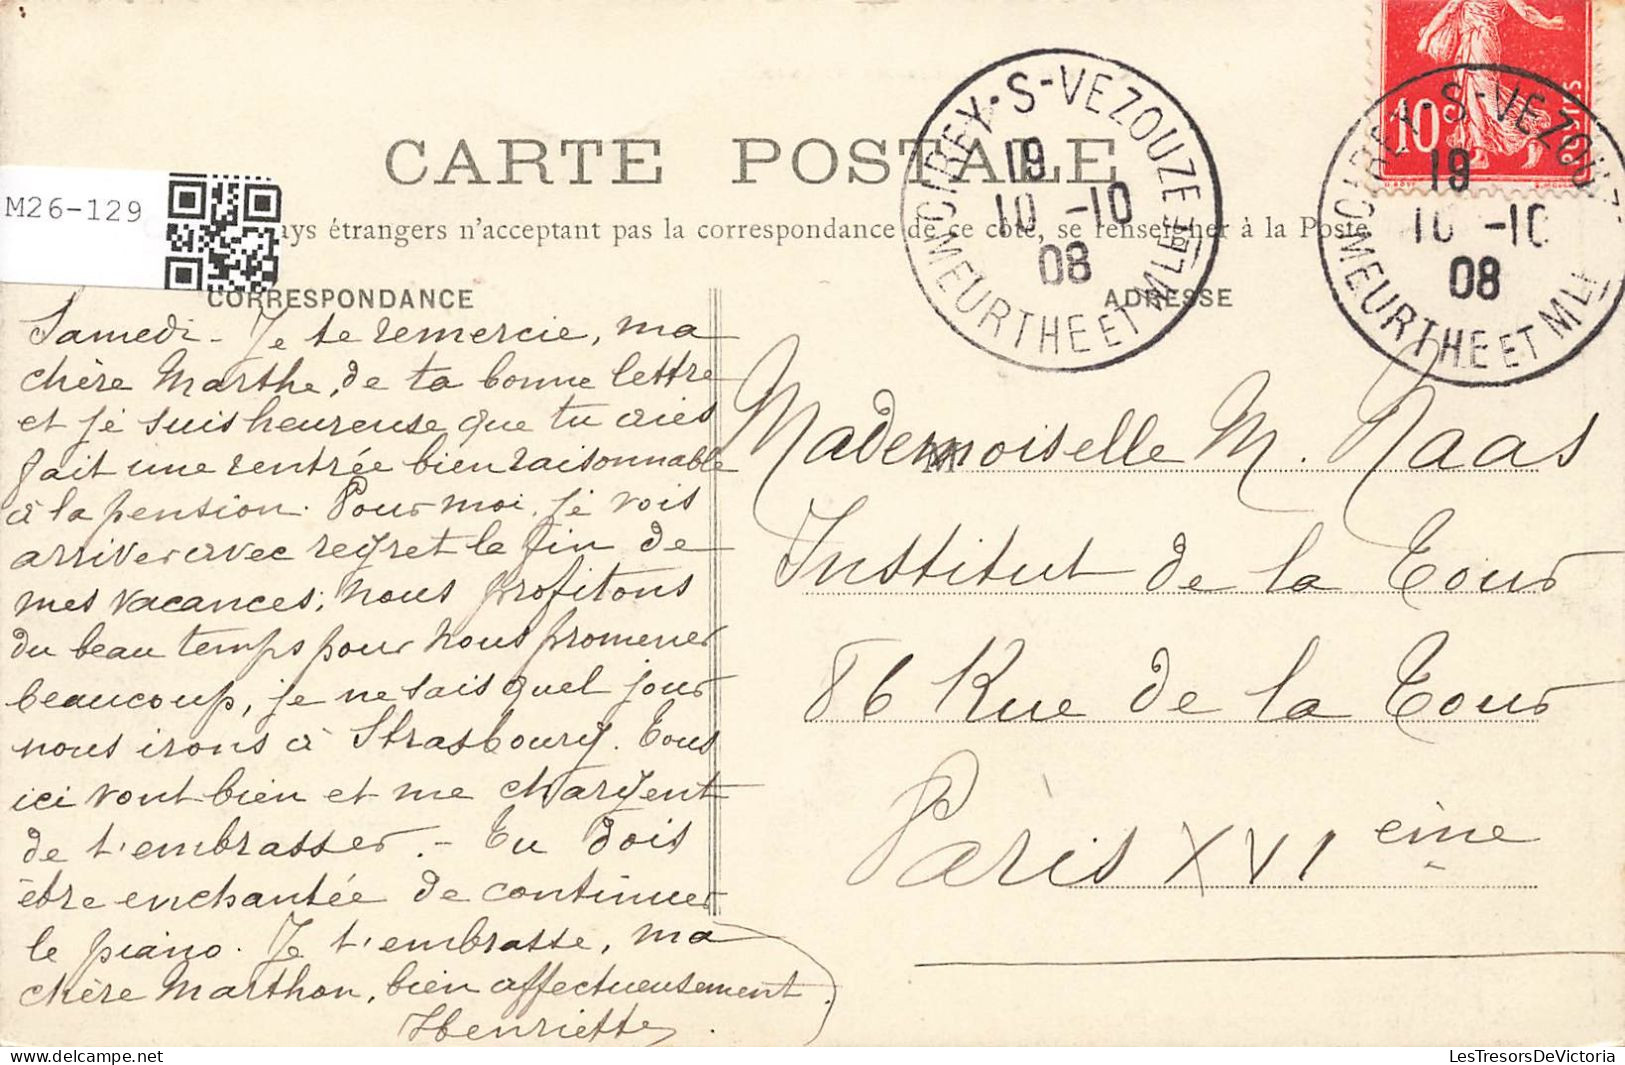 CARTE POSTALE
M26-129
ays étrangers n'acceptant pas la correspondance de ce côté, se renseigner à la Poste
CORRESPONDANCE
Samedi - Je te remercie, ma
chère Marthe, de ta bonne lettre
et je suis heureuse que tu aies
fait une rentrée bien raisonnable
à la pension. Pour moi, je vois
arriver avec regret la fin de
mes vacances; nous profitons
du beau temps pour nous promener
beaucoup, je ne sais quel jour
nous irons à Strasbourg. Tous
ici vont bien et me chargent
de t'embrasser. - Tu dois
être enchantée de continuer
le piano. Je t'embrasse, ma
chère Marthon, bien affectueusement.
Henriette.
ADRESSE
Mademoiselle M. Naas
Institut de la Tour
86 Rue de la Tour
Paris XVI ème
CIREY-S-VEZOUZE
19
10 -10
08
MEURTHE ET MLLE
10c
POSTES
CIREY-S-VEZOUZE
19
10 -10
08
MEURTHE ET MLLE
LesTresorsDeVictoria
www.delcampe.net